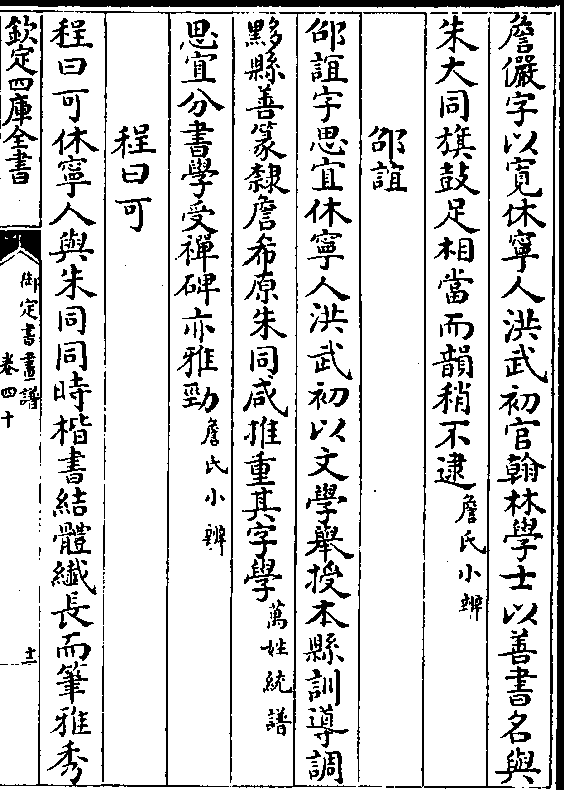 詹儼字以寬休寧人洪武初官翰林學士以善書名與
朱大同旗鼓足相當而韻稍不逮詹氏小辨
邵誼
邵誼字思宜休寧人洪武初以文學舉授本縣訓導調
黟縣善篆隸詹希原朱同咸推重其字學萬姓統譜
思宜分書學受禪碑亦雅勁詹氏小辨
程曰可
程曰可休寧人與朱同同時楷書結體纖長而筆雅秀
欽定四庫全書
御定書畫譜
卷四十
十二